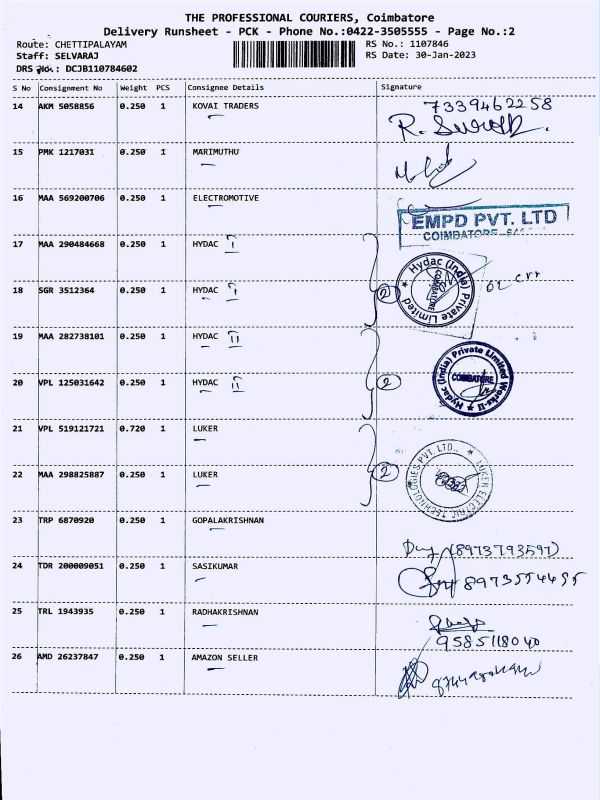 THE PROFESSIONAL COURIERS, Coimbatore
Delivery Runsheet - PCK - Phone No.:0422-3505555 - Page No.:2
Route: CHETTIPALAYAM
RS No.: 1107846
Staff: SELVARAJ
RS Date: 30-Jan-2023
DRS No.: DCJB110784602
S No Consignment No Weight PCS Consignee Details Signature
14 AKM 5058856 0.250 1 KOVAI TRADERS 7339462258
15 PMK 1217031 0.250 1 MARIMUTHU
16 MAA 569200706 0.250 1 ELECTROMOTIVE
EMPD PVT. LTD
COIMBATORE
17 MAA 290484668 0.250 1 HYDAC I
18 SGR 3512364 0.250 1 HYDAC I 2
Hydac (India) Private Limited
COIMBATORE
19 MAA 282738101 0.250 1 HYDAC II
20 VPL 125031642 0.250 1 HYDAC II 2
Hydac (India) Private Limited Works-II
COIMBATORE
21 VPL 519121721 0.720 1 LUKER
22 MAA 298825887 0.250 1 LUKER 2
LUKER ELECTRIC TECHNOLOGIES PVT. LTD.,
23 TRP 6870920 0.250 1 GOPALAKRISHNAN
(8973793597)
24 TDR 200009051 0.250 1 SASIKUMAR
25 TRL 1943935 0.250 1 RADHAKRISHNAN
9585118040
26 AMD 26237847 0.250 1 AMAZON SELLER